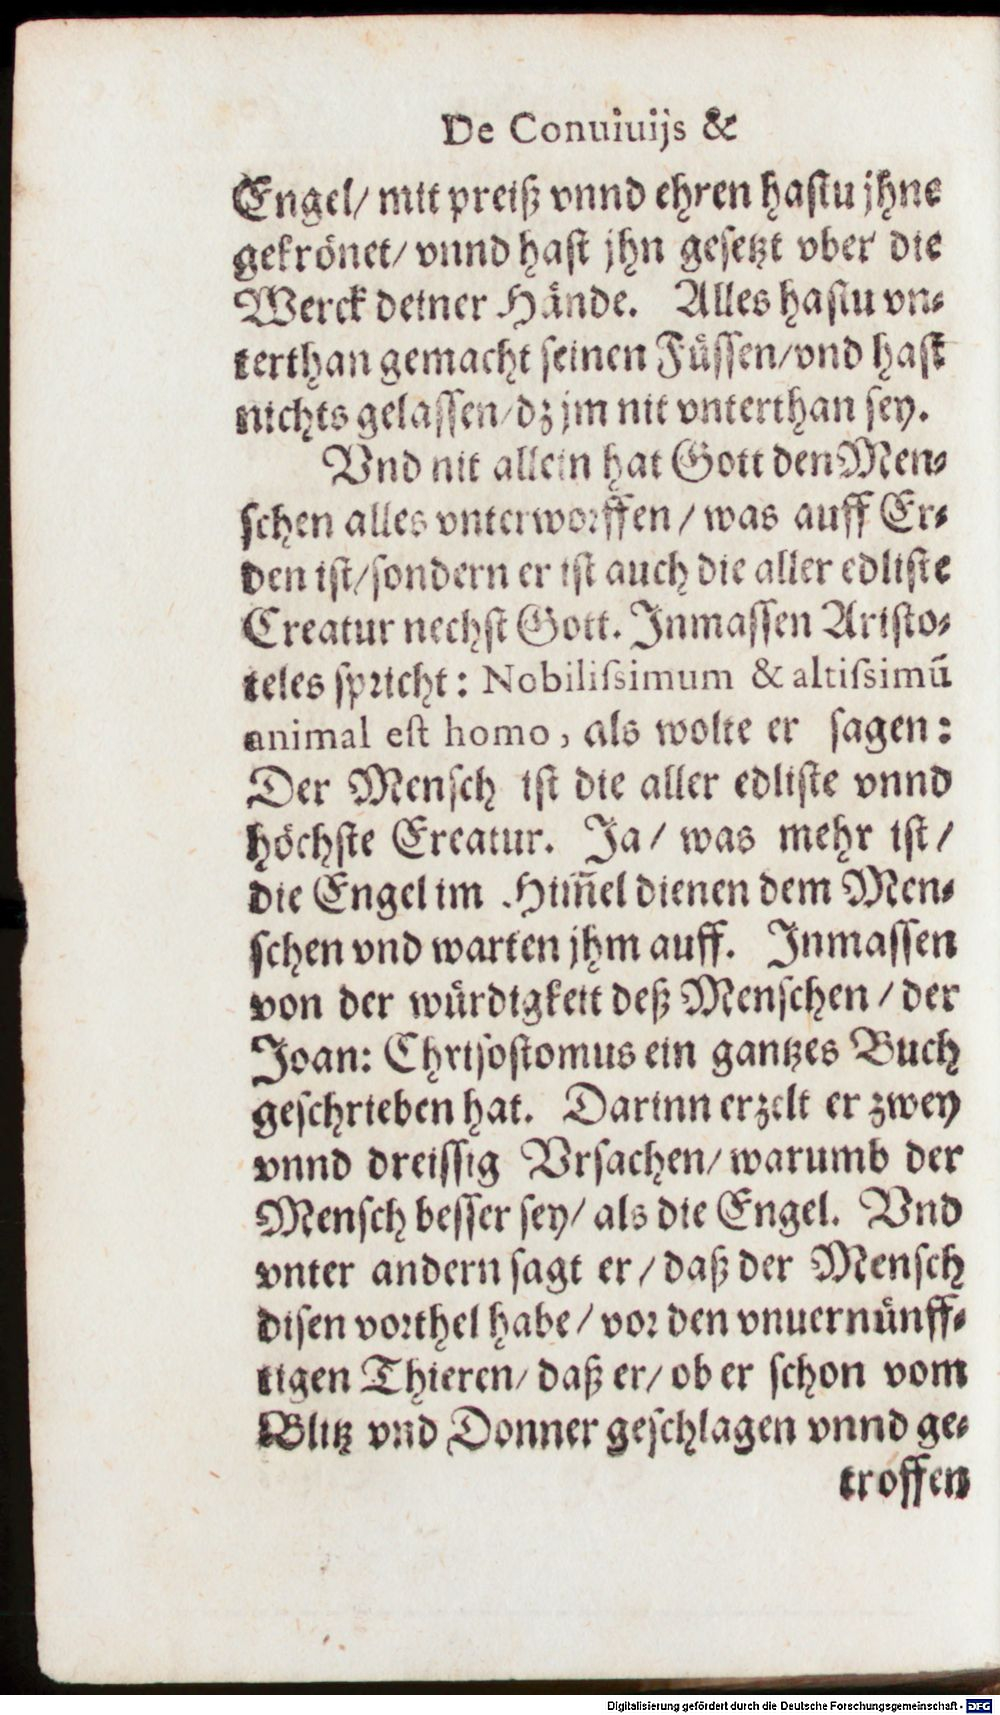 De Conuiuijs &
Engel/ mit preiß vnnd ehren hastu jhne
gekrönet/ vnnd hast jhn gesetzt vber die
Werck deiner Hände. Alles hastu vn-
terthan gemacht seinen Füssen/ vnd hast
nichts gelassen/ dz jm nit vnterthan sey.
Vnd nit allein hat Gott den Men-
schen alles vnterworffen / was auff Er-
den ist/ sondern er ist auch die aller edliste
Creatur nechst Gott. Inmassen Aristo-
teles spricht: Nobilissimum & altissimū
animal est homo, als wolte er sagen:
Der Mensch ist die aller edliste vnnd
höchste Creatur. Ja / was mehr ist /
die Engel im Him̅el dienen dem Men-
schen vnd warten jhm auff. Inmassen
von der würdigkeit deß Menschen / der
Joan: Chrisostomus ein gantzes Buch
geschrieben hat. Darinn erzelt er zwey
vnnd dreissig Vrsachen/ warumb der
Mensch besser sey/ als die Engel. Vnd
vnter andern sagt er / daß der Mensch
disen vorthel habe / vor den vnuernünff-
tigen Thieren/ daß er/ ob er schon vom
Blitz vnd Donner geschlagen vnnd ge-
troffen
Digitalisierung gefördert durch die Deutsche Forschungsgemeinschaft - DFG